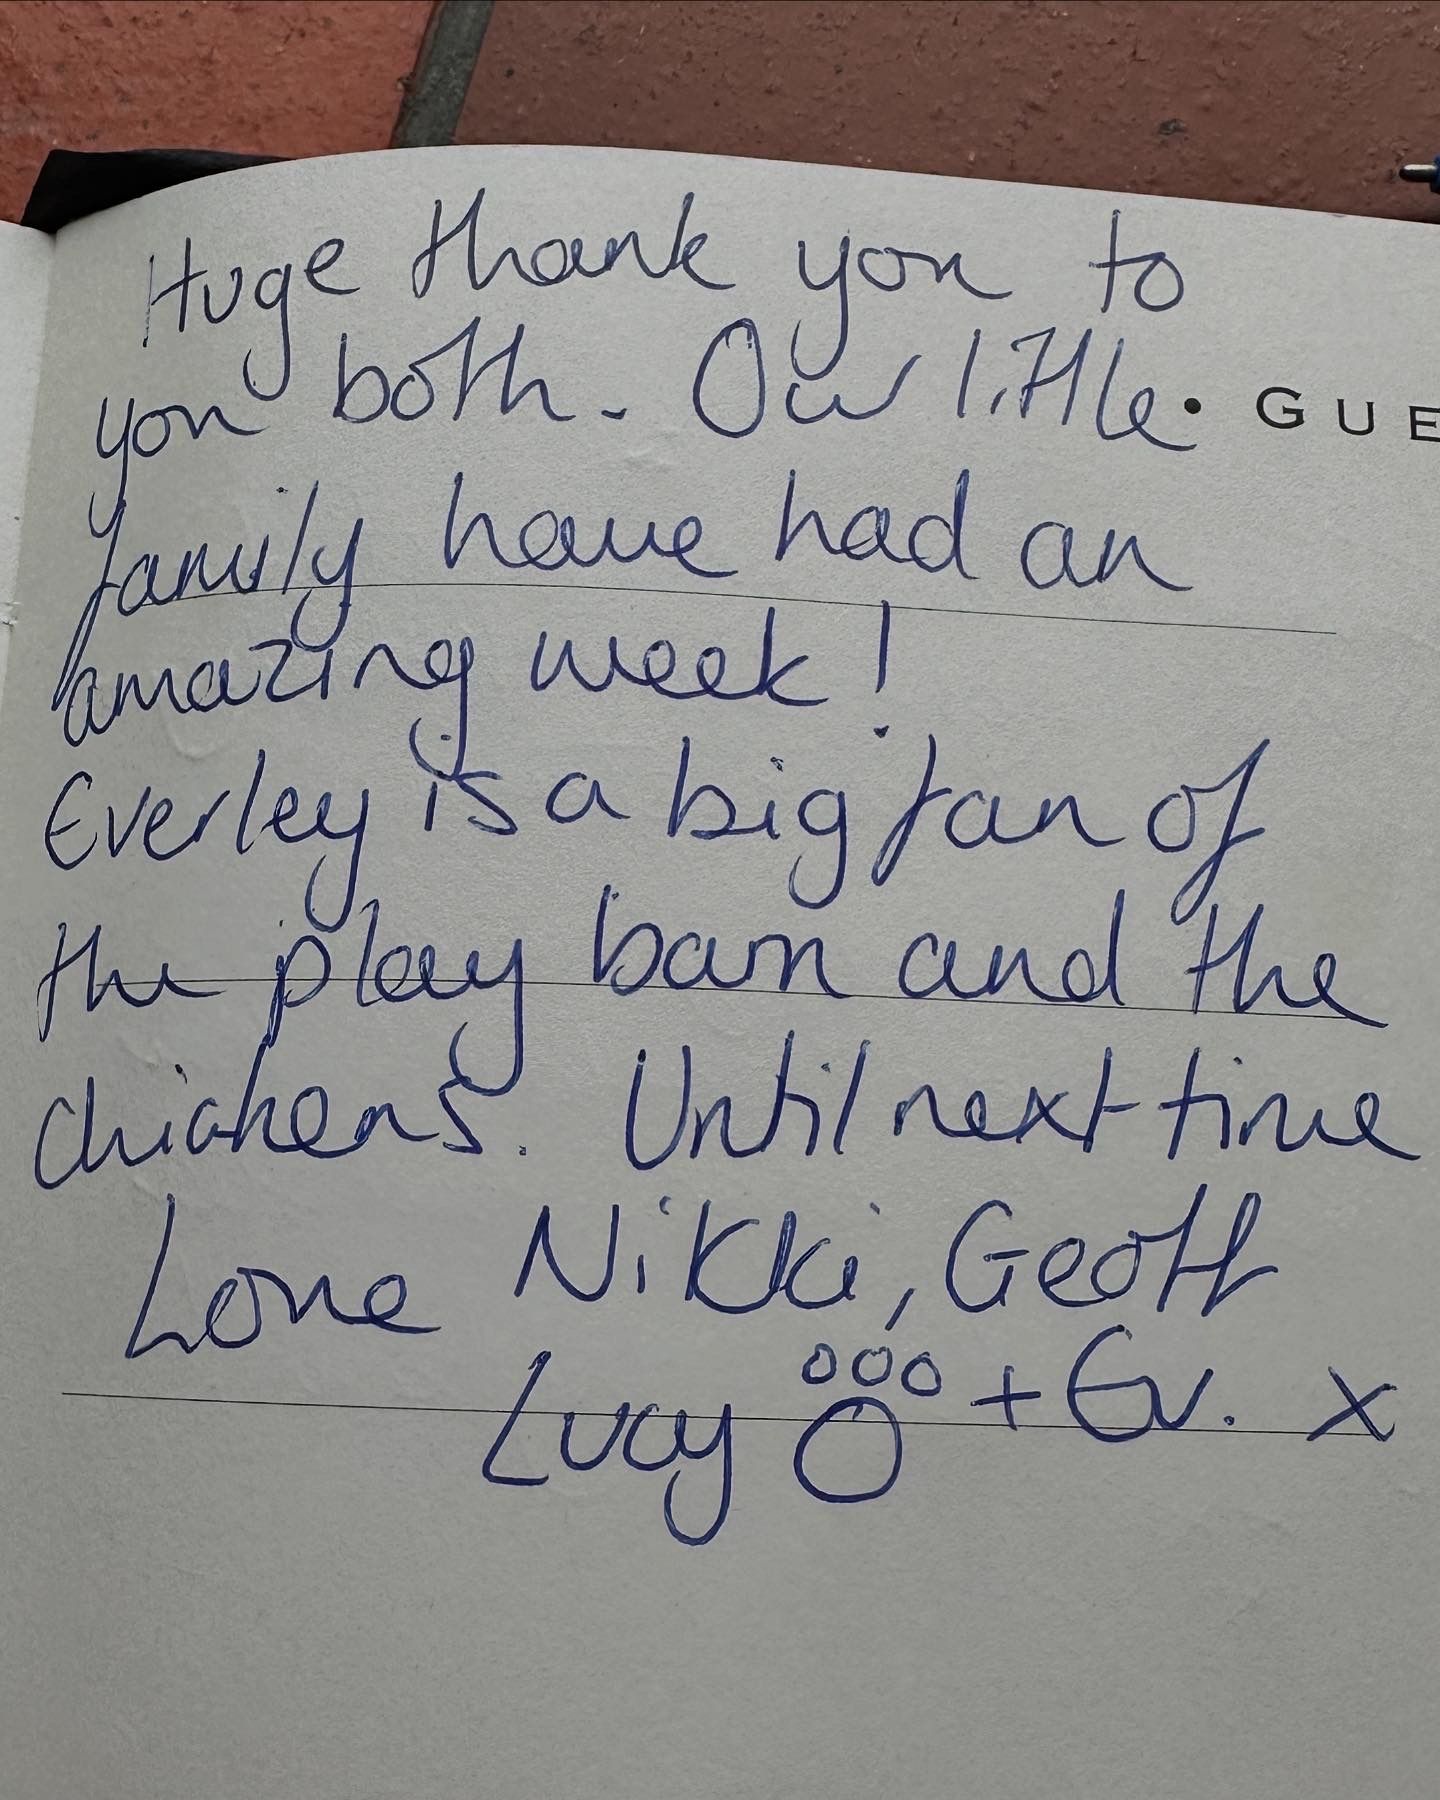 Huge thank you to
you both. Our little
• GUE
family have had an
amazing week!
Everley is a big fan of
the play barn and the
chickens. Until next time
Love Nikki, Geoff
Lucy + Ev. x